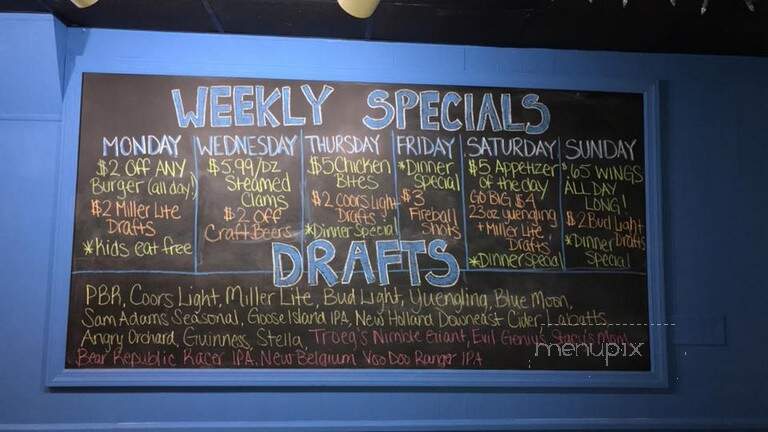 WEEKLY SPECIALS
MONDAY
$2 OFF ANY
Burger (all day!)
$2 Miller Lite
Drafts
*Kids eat free
WEDNESDAY
$5.99/DZ
Steamed
Clams
$2 OFF
Craft Beers
THURSDAY
$5 Chicken
Bites
$2 Coors Light
Drafts
*Dinner Special
FRIDAY
*Dinner
Special
$3
Fireball
Shots
SATURDAY
$5 Appetizer
of the day
GO BIG $4
23oz yuengling
+ Miller Lite
Drafts
*Dinner Special
SUNDAY
$.65 WINGS
ALL DAY
LONG!
$2 Bud Light
Drafts
*Dinner
Special
DRAFTS
PBR, Coors Light, Miller Lite, Bud Light, Yuengling, Blue Moon,
Sam Adams Seasonal, Goose Island IPA, New Holland Downeast Cider, Labatts
Angry Orchard, Guinness, Stella, Troeg's Nimble Giant, Evil Genius Stacy's Mom
Bear Republic Racer IPA, New Belgium Voo Doo Ranger IPA
menupix